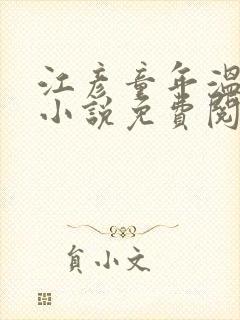 江彦童年溫
小說免費閱
負小文